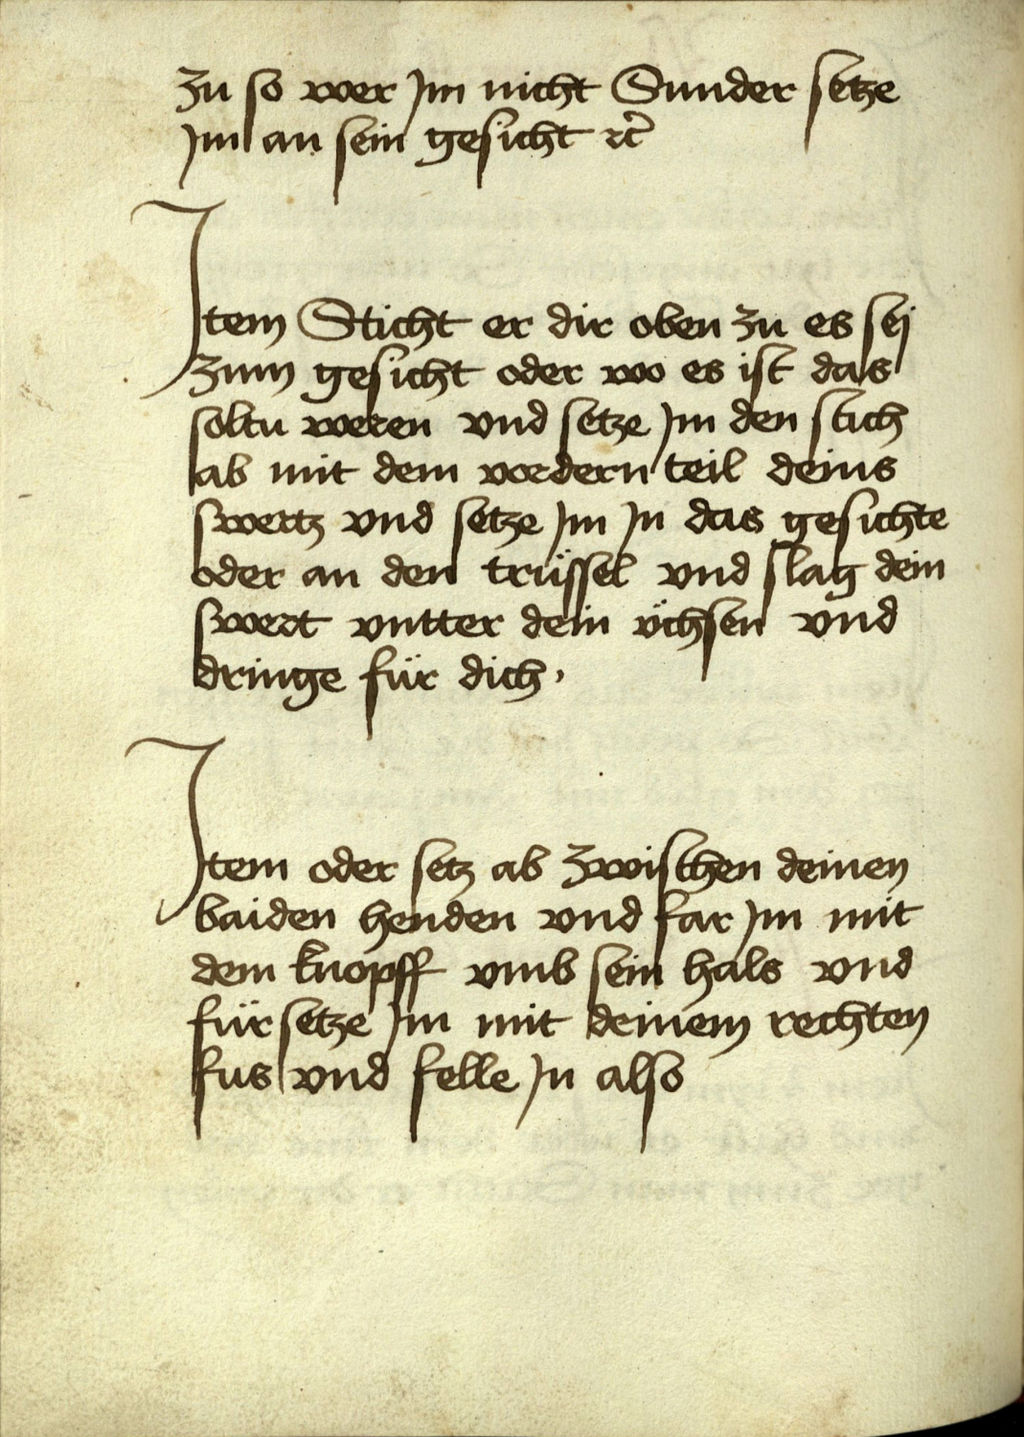 zu so wer Jm nicht Sunder setze
Jm an sein gesicht rc̃
Jtem Sticht er dir oben zu es seÿ
zum gesicht oder wo es ist das
soltu weren vnd setze Jm den stich
ab mit dem vordern teil deins
swertz vnd setze Jm Jn das gesichte
oder an den trüssel vnd slag dein
swert vntter dein üchsen vnd
dringe für dich.
Jtem oder setz ab zwischen deinen
baiden henden vnd far Jm mit
dem knopff vmb sein hals vnd
für setze Jm mit deinem rechten
fus vnd felle Jn also